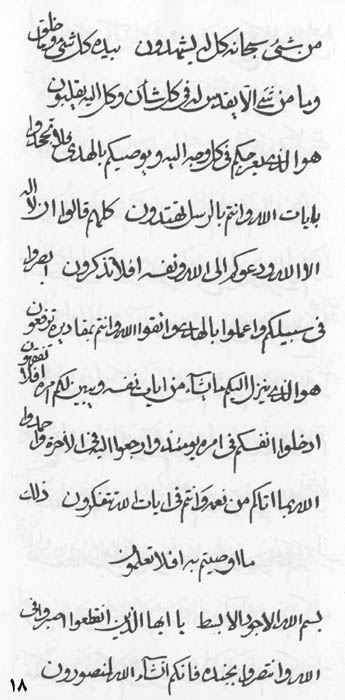 من شئ سبحانه كل له يشهدون بيده كل شئ وما خلق
وما من شئ الا يقدس له في كل شأن وكل اليه يقلبون
هو الذي يعرجكم في كل وجه اليه ويوصيكم بالهدى فلا تجحدوا
بايات الله وانتم بالرسل تهتدون كلهم قالوا ان لا اله
الا الله ودعوكم الى الله ونفسه افلا تذكرون
في سبيلكم واعملوا بالهدى واتقوا الله وانتم بمقاديره ترفعون
هو الذي ينزل اليكم ما يشاء من ايات نفسه ويبين لكم امره افلا تتفقهون
ادخلوا انفسكم في امره وارجعوا اليه في الاخرة
الله بما اتاكم من نعمه وانتم في ايات الله تتفكرون ذلك
ما اوصيتم به افلا تعلمون
بسم الله الاجود الابسط يا ايها الذين انقطعوا اصبروا في
الله وانتصروا بجنده فانكم انشاء الله لتنصورون
١٨